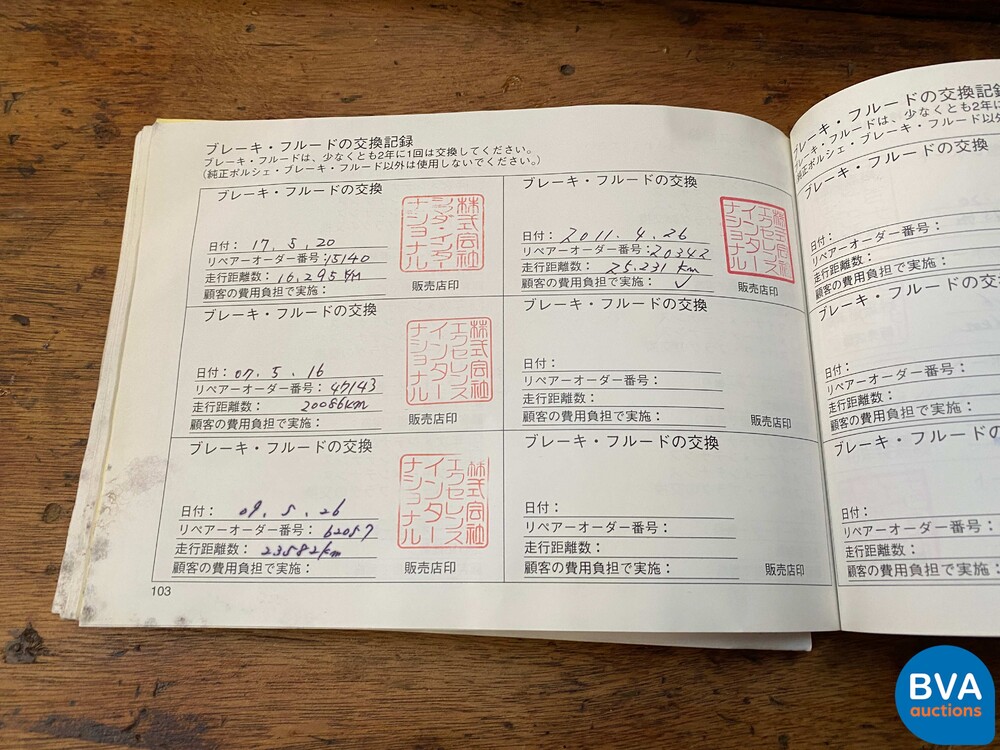 ブレーキ・フルードの交換記録
ブレーキ・フルードは、少なくとも2年に1回は交換してください。
（純正ポルシェ・ブレーキ・フルード以外は使用しないでください。）
ブレーキ・フルードの交換
日付： 17. 5. 20
リペアーオーダー番号： 15140
走行距離数： 16,295 km
顧客の費用負担で実施：
販売店印
株式会社
ミツダ・インター
ナショナル
ブレーキ・フルードの交換
日付： 07. 5. 16
リペアーオーダー番号： 47143
走行距離数： 20086km
顧客の費用負担で実施：
販売店印
株式会社
エクセレンス
インター
ナショナル
ブレーキ・フルードの交換
日付： 09. 5. 26
リペアーオーダー番号： 62057
走行距離数： 23582km
顧客の費用負担で実施：
販売店印
株式会社
エクセレンス
インター
ナショナル
103
ブレーキ・フルードの交換
日付： 2011. 4. 26
リペアーオーダー番号： 20342
走行距離数： 25.231 km
顧客の費用負担で実施： ✓
販売店印
株式会社
エクセレンス
インター
ナショナル
ブレーキ・フルードの交換
日付：
リペアーオーダー番号：
走行距離数：
顧客の費用負担で実施：
販売店印
ブレーキ・フルードの交換
日付：
リペアーオーダー番号：
走行距離数：
顧客の費用負担で実施：
販売店印
ブレーキ・フルードの交換記録
ブレーキ・フルードは、少なくとも2年に
純正ポルシェ・ブレーキ・フルード以外
ブレーキ・フルードの交換
日付：
リペアーオーダー番号：
走行距離数：
顧客の費用負担で実施：
ブレーキ・フルードの交
日付：
リペアーオーダー番号：
走行距離数：
顧客の費用負担で実施：
ブレーキ・フルードの
日付：
リペアーオーダー番号：
走行距離数：
顧客の費用負担で実施：
BVA
auctions